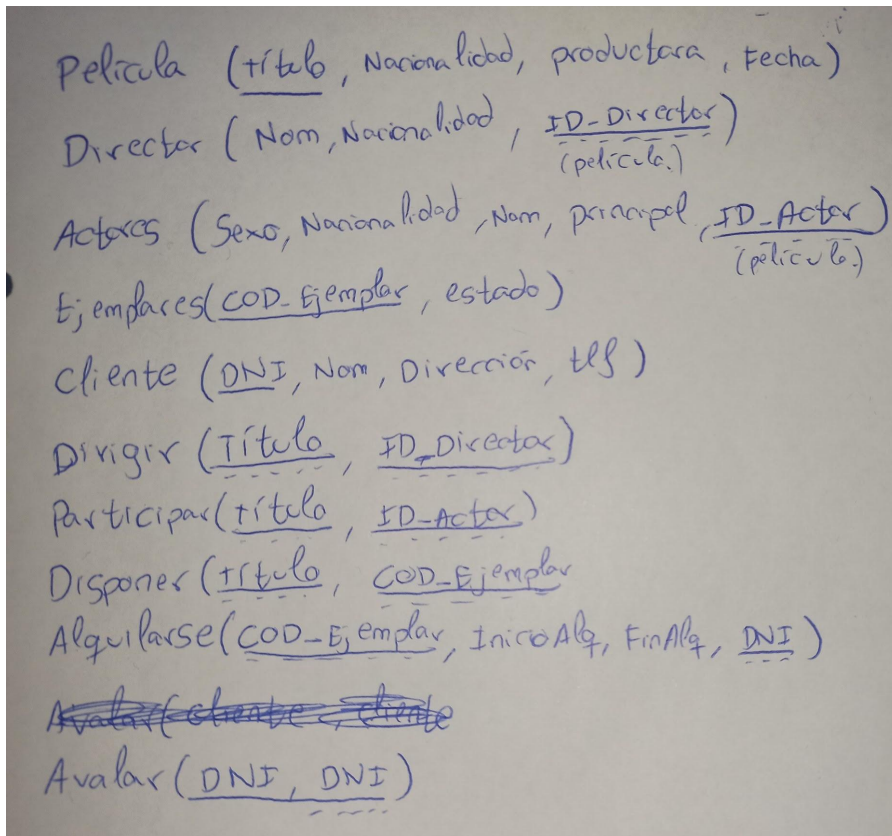 Película (título, Nacionalidad, productora, Fecha)
Director (Nom, Nacionalidad, ID-Director)
(película.)
Actores (Sexo, Nacionalidad, Nom, principal, ID_Actor)
(película.)
Ejemplares(COD_Ejemplar, estado)
Cliente (DNI, Nom, Dirección, tlf)
Dirigir (Título, ID_Director)
Participar(título, ID-Actor)
Disponer (título, COD_Ejemplar
Alquilarse(COD-Ejemplar, InicoAlq, FinAlq, DNI)
Avalar (DNI, DNI)